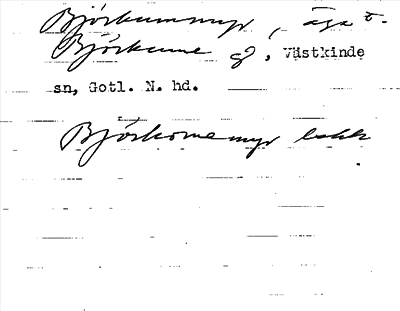 Björkummyr, äga t.
Björkume gd, Västkinde
sn, Gotl. N. hd.
Björkomemyr lokk